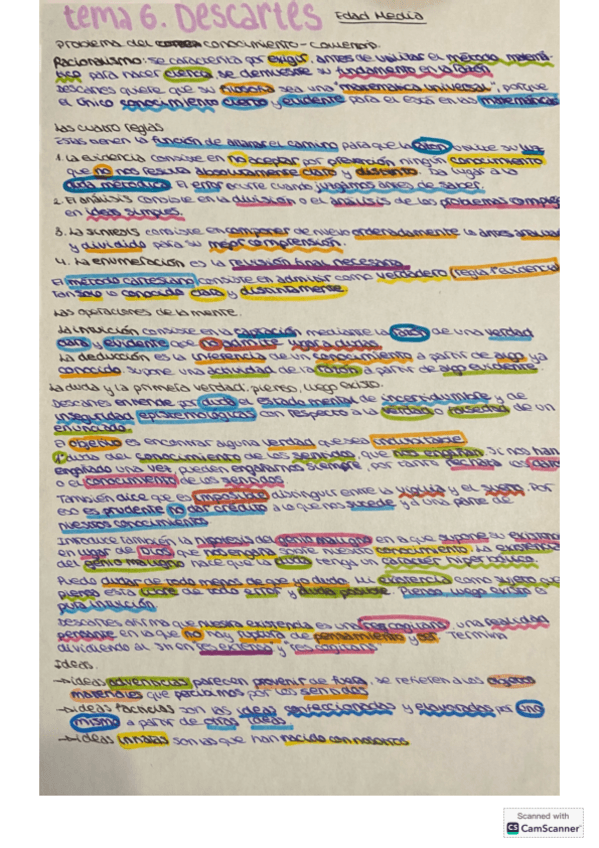 tema 6. Descartes Edad Media
problema del conocimiento - comienzo.
Racionalismo: se caracteriza por exigir, antes de utilizar el método matemá-
tico para hacer ciencia, se demuestre su fundamento en la razón
Descartes quiere que su filosofía sea una "matemática universal", porque
el único conocimiento cierto y evidente para él está en las matemáticas
Las cuatro reglas
Estas tienen la función de allanar el camino para que la razón utilice su luz
1. La evidencia consiste en no aceptar por prevención ningún conocimiento
que no nos resulta absolutamente claro y distinto. Da lugar a la
duda metódica. El error ocurre cuando juzgamos antes de saber.
2. El análisis consiste en la división o el análisis de los problemas complejos
en ideas simples.
3. La síntesis consiste en componer de nuevo ordenadamente lo antes analizado
y dividido para su mejor comprensión.
4. La enumeración es la revisión final necesaria.
El método cartesiano consiste en admitir como verdadero (regla evidencia
tan solo lo conocido clara y distintamente.
Las operaciones de la mente.
La intuición consiste en la captación mediante la razón de una verdad
clara y evidente que no admite lugar a dudas
La deducción es la inferencia de un conocimiento a partir de algo ya
conocido. Supone una actividad de la razón a partir de algo evidente.
La duda y la primera verdad: pienso, luego existo.
Descartes entiende por duda el estado mental de incertidumbre y de
inseguridad epistemológicas con respecto a la verdad o falsedad de un
enunciado.
El objetivo es encontrar alguna verdad que sea indubitable.
del conocimiento de los sentidos, que nos engañan. Si nos han
engañado una vez pueden engañarnos siempre, por tanto rechaza los
o el conocimiento de los sentidos
También dice que es imposible distinguir entre la vigilia y el sueño. Por
eso es prudente no dar crédito a lo que nos sucede y a una parte de
nuestros conocimientos
Introduce también la hipótesis del genio maligno en la que supone su existencia
en lugar de Dios que nos engaña sobre nuestro conocimiento. La existencia
del genio maligno hace que la duda tenga un carácter hiperbólico.
Puedo dudar de todo menos de que yo dudo. Mi existencia como sujeto que
piensa está libre de todo error y duda posible. Pienso luego existo es
pura intuición
Descartes afirma que nuestra existencia es una "res cogitans", una realidad
pensante en la que no hay ruptura de pensamiento y ser. Termina
dividiendo al SH en "res extensa" y "res cogitans"
Ideas.
→ ideas adventicias: parecen provenir de fuera, se refieren a los objetos
materiales que percibimos por los sentidos
→ ideas facticias son las ideas confeccionadas y elaboradas por uno
mismo a partir de otras ideas
→ ideas innatas son las que han nacido con nosotros
Scanned with
CS CamScanner